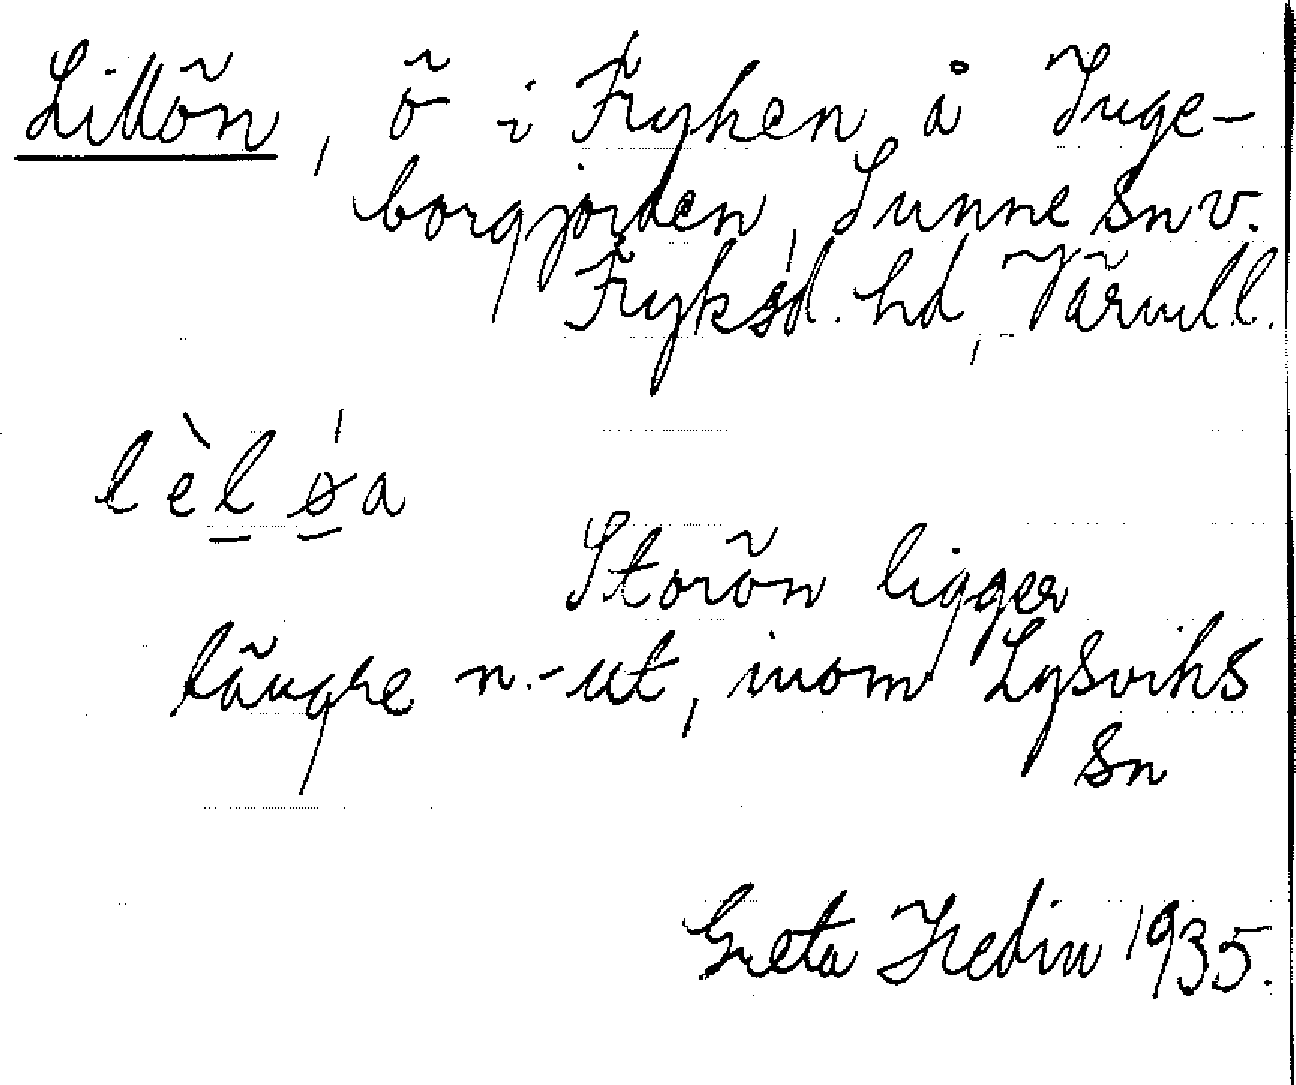 Lillön, ö i Fryken å Inge-
borgjorden, Sunne sn v.
Fryksd. hd, Värml.l.
lèl øa
Storön ligger
längre n.-ut, inom Lysviks
sn
Greta Hedin 1935.